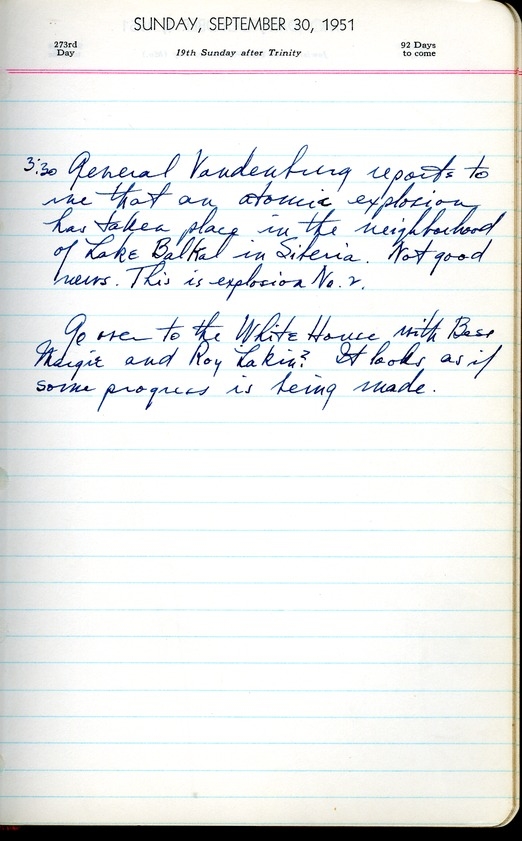 SUNDAY, SEPTEMBER 30, 1951
273rd Day
19th Sunday after Trinity
92 Days to come
3:30 General Vandenburg reports to
me that an atomic explosion
has taken place in the neighborhood
of Lake Balkal in Siberia. Not good
news. This is explosion No. 2.
Go over to the White House with Bess
Margie and Roy Lakin? It looks as if
some progress is being made.